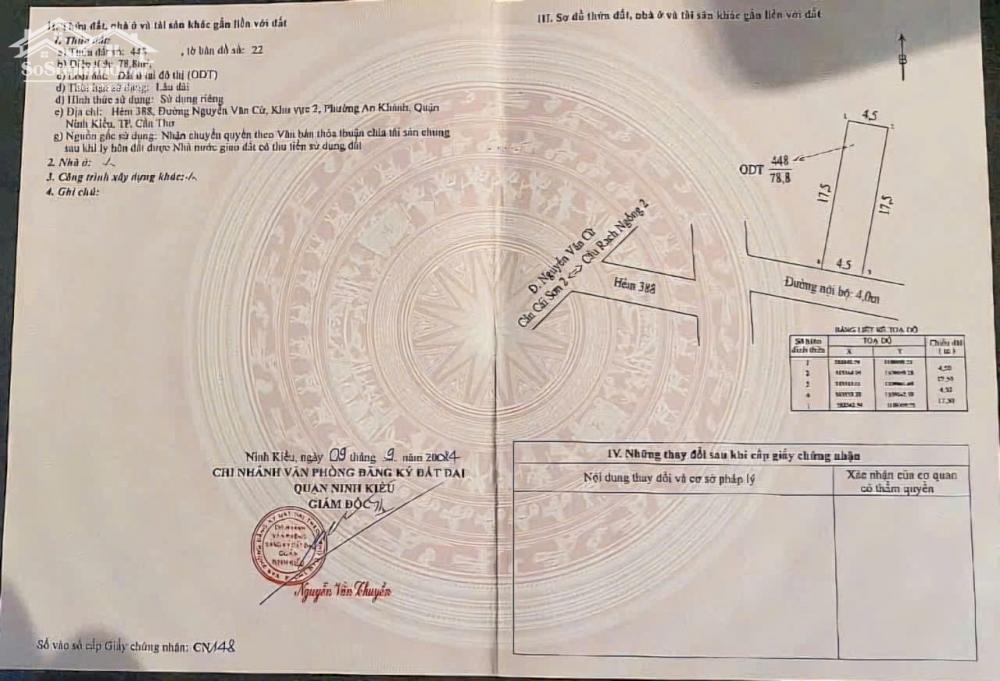 II. Thửa đất, nhà ở và tài sản khác gắn liền với đất
1. Thửa đất:
a) Thửa đất số: 448 , tờ bản đồ số: 22
b) Diện tích: 78,8m²
c) Loại đất: Đất ở tại đô thị (ODT)
d) Thời hạn sử dụng: Lâu dài
đ) Hình thức sử dụng: Sử dụng riêng
e) Địa chỉ: Hẻm 388, Đường Nguyễn Văn Cừ, Khu vực 2, Phường An Khánh, Quận
Ninh Kiều, TP. Cần Thơ
g) Nguồn gốc sử dụng: Nhận chuyển quyền theo Văn bản thỏa thuận chia tài sản chung
sau khi ly hôn đất được Nhà nước giao đất có thu tiền sử dụng đất
2. Nhà ở: -/-
3. Công trình xây dựng khác: -/-
4. Ghi chú:
Ninh Kiều, ngày 09 tháng 9 năm
CHI NHÁNH VĂN PHÒNG ĐĂNG KÝ ĐẤT ĐAI
QUẬN NINH KIỀU
GIÁM ĐỐC
CHI NHÁNH
VĂN PHÒNG
ĐĂNG KÝ ĐẤT ĐAI
QUẬN
NINH KIỀU
Nguyễn Văn Thuyền
Số vào sổ cấp Giấy chứng nhận: CN148
III. Sơ đồ thửa đất, nhà ở và tài sản khác gắn liền với đất
B
1
4,5
2
ODT 448
78,8
17,5
17,5
4
4.5
3
Đường nội bộ: 4,0m
Hẻm 388
Đ. Nguyễn Văn Cừ
Cầu Cái Sơn 2 <=> Cầu Rạch Ngỗng 2
BẢNG LIỆT KÊ TOẠ ĐỘ
Số hiệu đỉnh thửa
TOẠ ĐỘ
X Y
Chiều dài (m)
1
4,50
2
17,50
3
4,50
4
17,50
1
IV. Những thay đổi sau khi cấp giấy chứng nhận
Nội dung thay đổi và cơ sở pháp lý
Xác nhận của cơ quan
có thẩm quyền